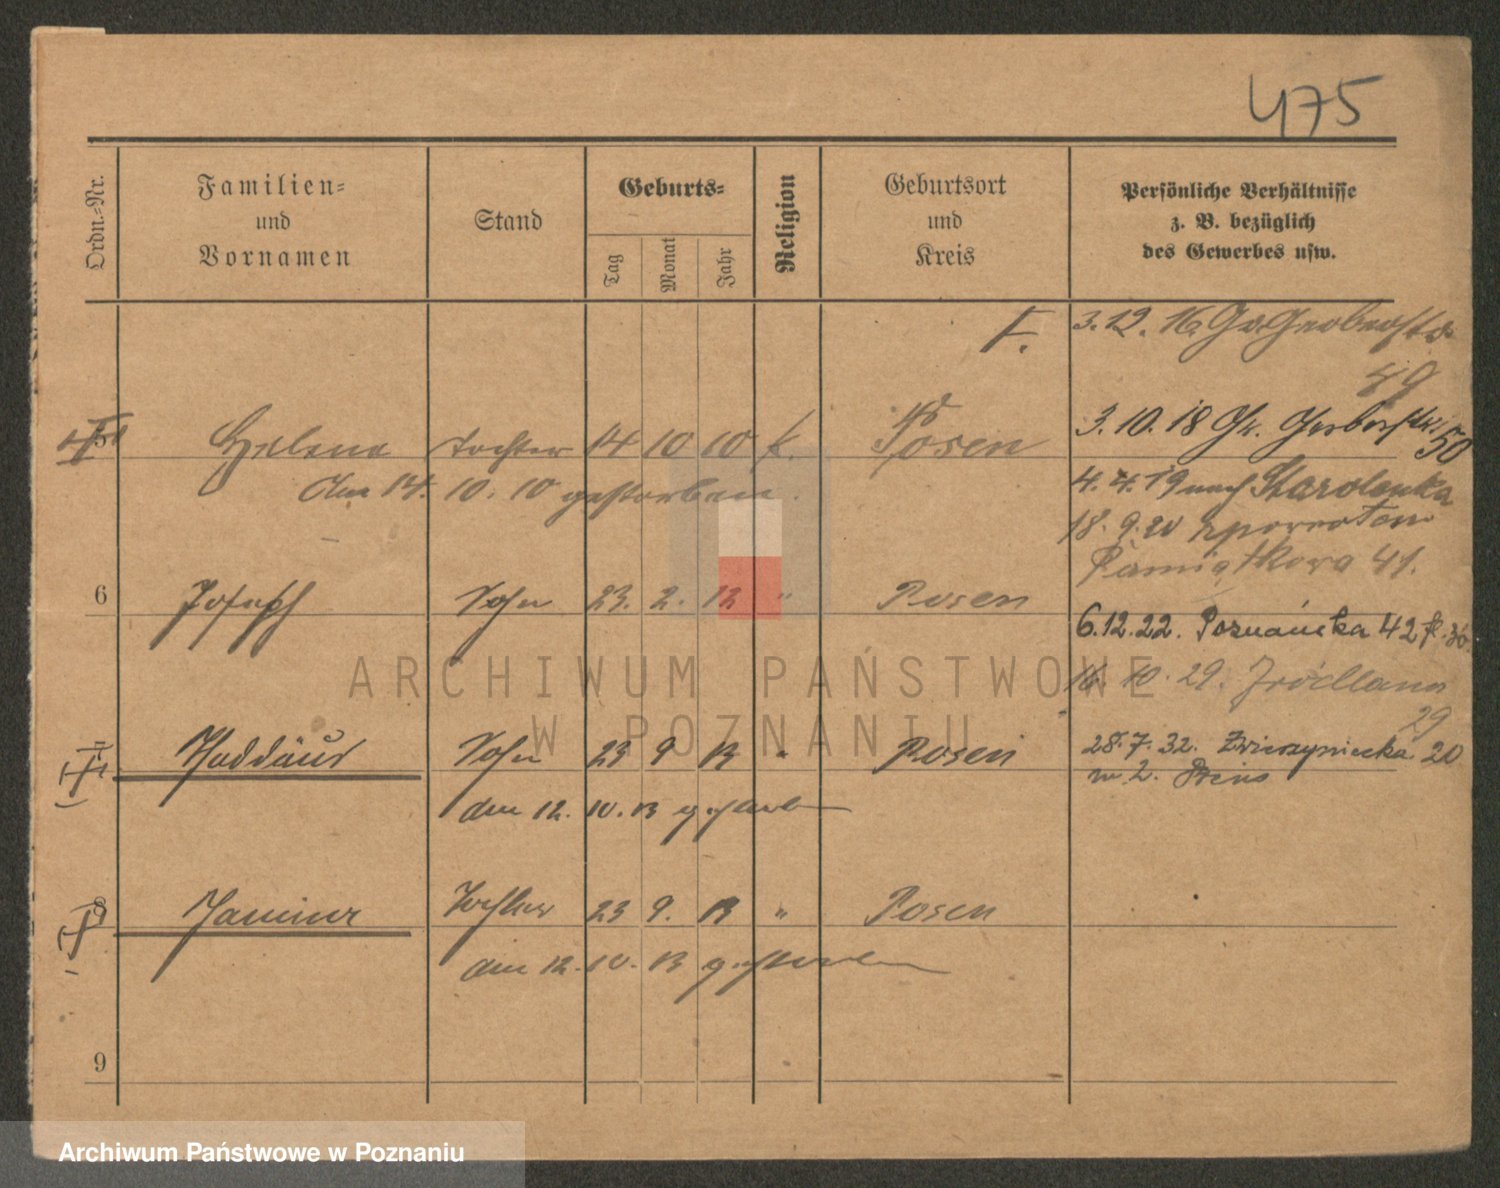 475
Ordn.-Nr.
Familien-
und
Vornamen
Stand
Geburts-
Tag
Monat
Jahr
Religion
Geburtsort
und
Kreis
Persönliche Verhältnisse
z. B. bezüglich
des Gewerbes usw.
3.12.16. Gr. Gerberstr.
49
5 Helene Tochter 14 10 10 k. Posen
am 14. 10. 10 gestorben.
3.10.18 Gr. Gerberstr. 50
4. 4. 19 nach Starolenka
18. 9. 20 z powrotem
Pamiątkowa 41.
6 Joseph Sohn 23. 2. 12 " Posen
6.12.22. Poznańska 42
16. 10. 29. Źródlana
29
Thaddäus Sohn 23 9 13 " Posen
28.7.32. Zwierzyniecka 20
m 2.
den 12. 10. 13 gestorben
8 Janina Tochter 23 9. 13 " Posen
den 12. 10. 13 gestorben
9
ARCHIWUM PAŃSTWOWE
W POZNANIU
Archiwum Państwowe w Poznaniu